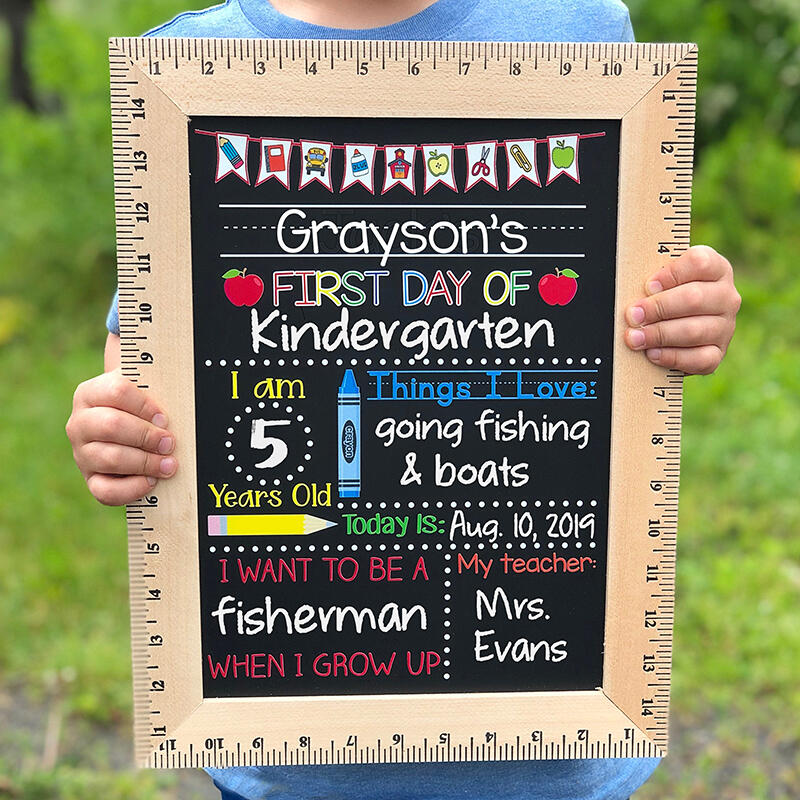 1 2 3 4 5 6 7 8 9 10 11
14 13 12 11 10 9 6 5 4 3 2 1
1 2 3 4 7 8 9 10 11 12 13 14
Grayson's
FIRST DAY OF
Kindergarten
I am
5
Years Old
Things I Love:
going fishing
& boats
crayon
Today Is: Aug. 10, 2019
I WANT TO BE A
fisherman
WHEN I GROW UP
My teacher:
Mrs.
Evans
11 10 9 8 7 6 5 4 3 2 1